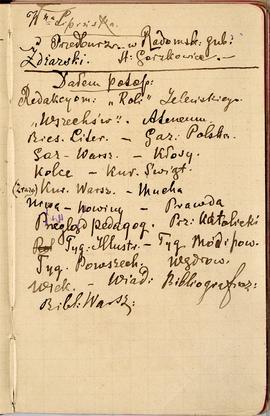 Wna Lipińska
p. Przedbórz w Radomsk. gub:
Zdzarski. St: Gorzkowice. —
Dałem potop:
Redakcyom: „Roli" Jeleńskiego
„Wszechśw". Ateneum
Bies. Liter. — Gaz: Polska
Gaz — Warsz. — Kłosy.
Kolce — Kur. Świąt.
Kur. Warsz. — Mucha
Niwa — Nowiny — Prawda
Przegląd pedagog. Prz: Katolicki
Tyg. Illustr. — Tyg. Mód i pow.
Tyg. Powszech. Wędrow.
Wiek. — Wiad: Bibliograficz:
Bibl: Warsz: